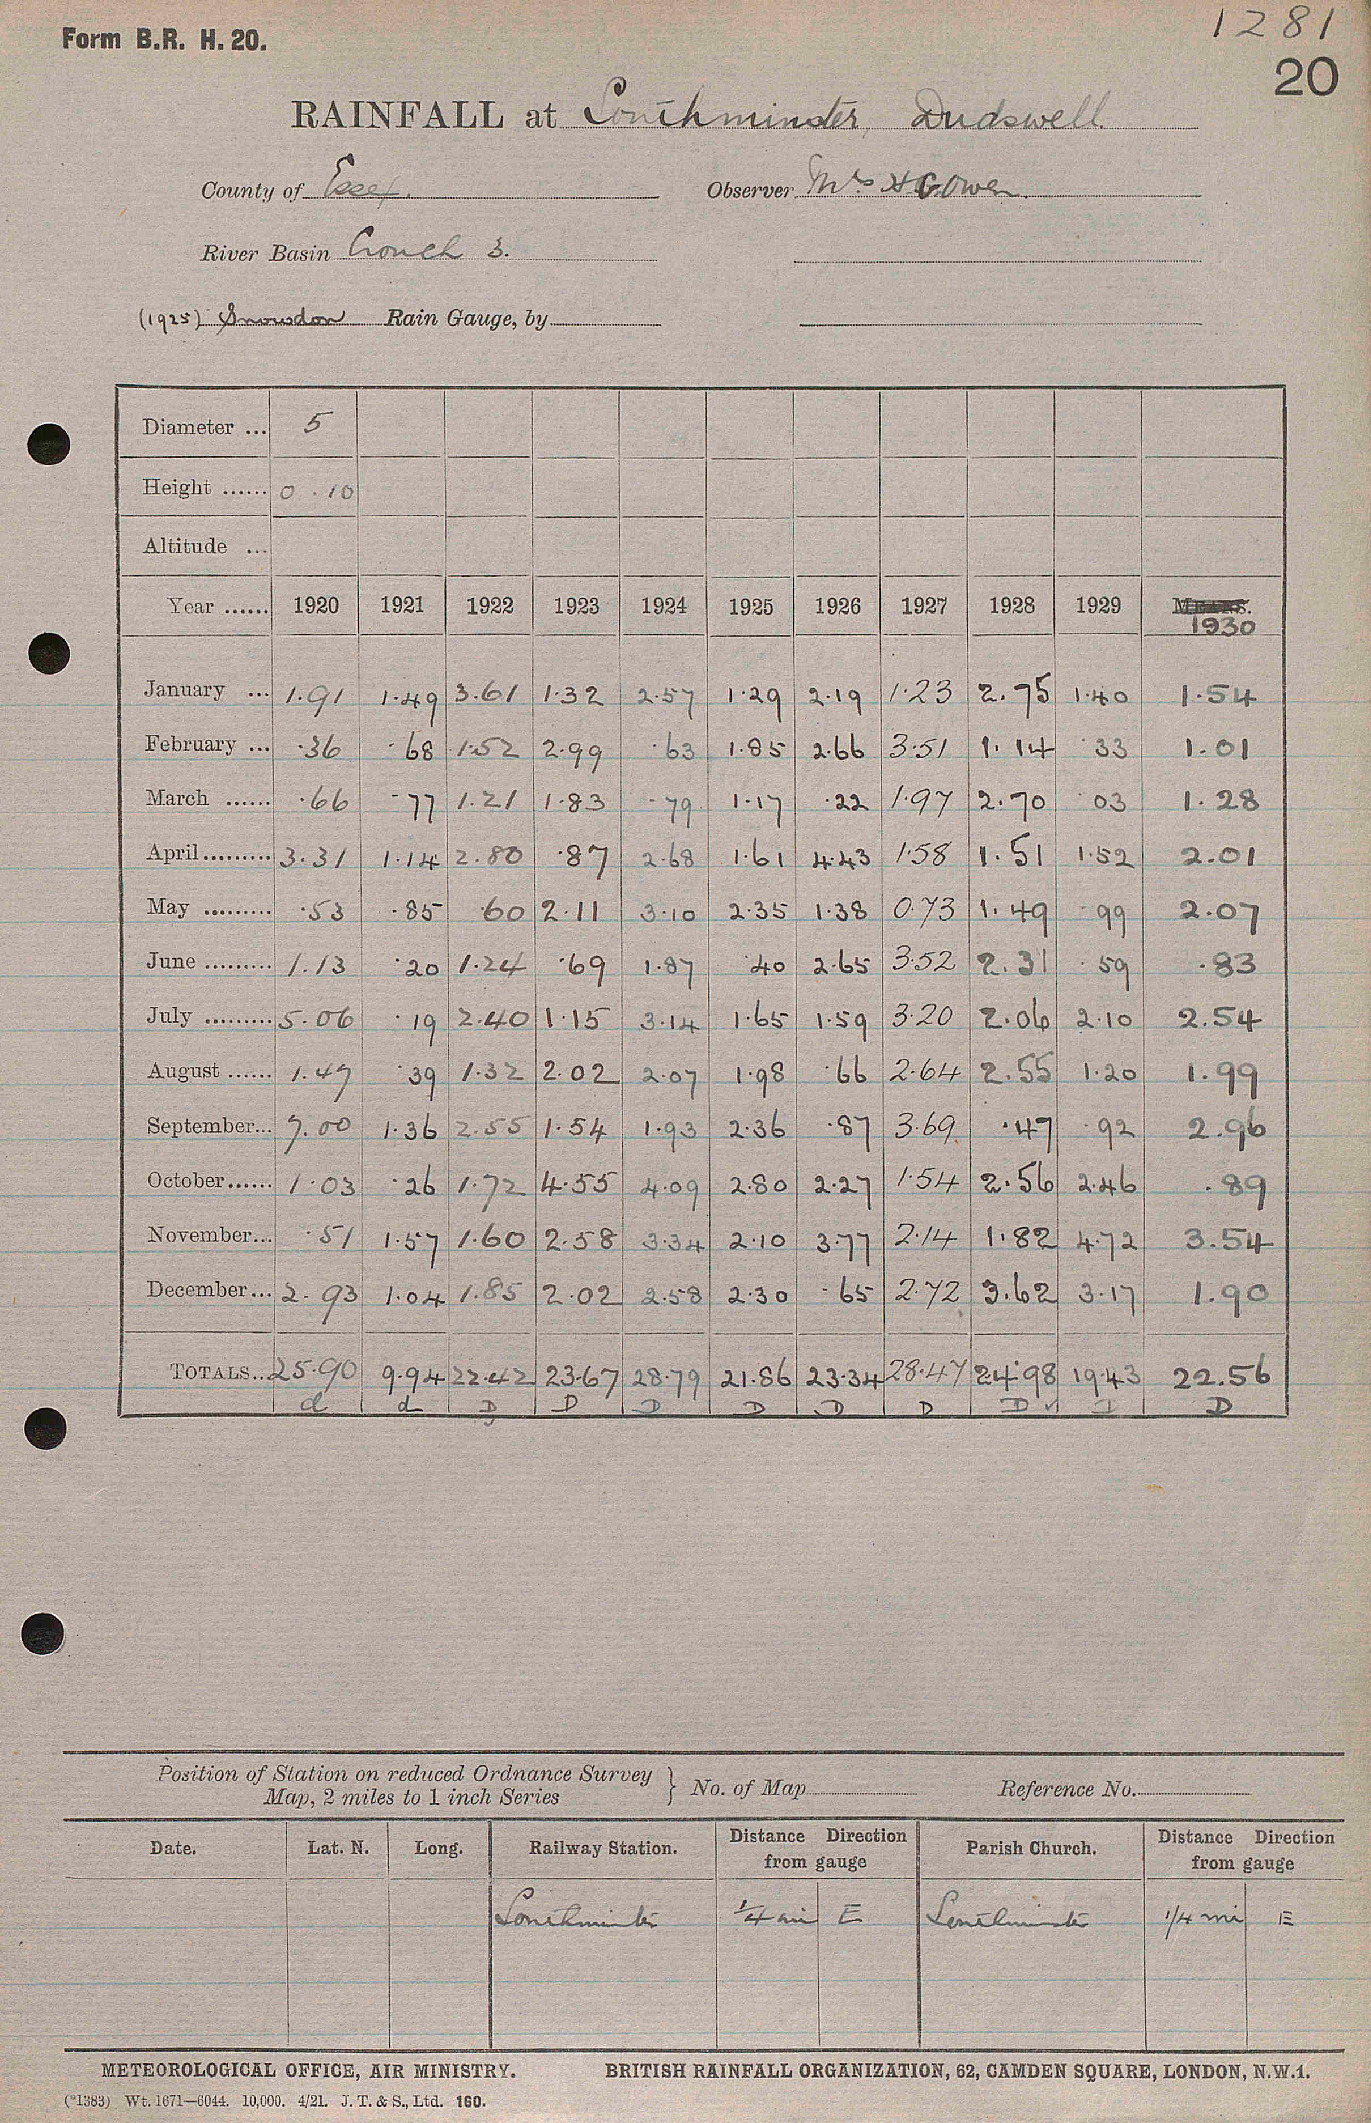 Form B.R. H. 20.
1281
20
RAINFALL at Southminster, Dudswell.
County of Essex. Observer Mrs H G Owen
River Basin Crouch 3.
(1925) Snowdon Rain Gauge, by
Diameter ... 5
Height ...... 0 . 10
Altitude ...
Year ...... 1920 1921 1922 1923 1924 1925 1926 1927 1928 1929 MEANS.
1930
January ... 1.91 1.49 3.61 1.32 2.57 1.29 2.19 1.23 2.75 1.40 1.54
February ... .36 .68 1.52 2.99 .63 1.85 2.66 3.51 1.14 .33 1.01
March ...... .66 .77 1.21 1.83 .79 1.17 .22 1.97 2.70 .03 1.28
April......... 3.31 1.14 2.80 .87 2.68 1.61 4.43 1.58 1.51 1.52 2.01
May ......... .53 .85 .60 2.11 3.10 2.35 1.38 0.73 1.49 .99 2.07
June ......... 1.13 .20 1.24 .69 1.87 .40 2.65 3.52 2.31 .59 .83
July ......... 5.06 .19 2.40 1.15 3.14 1.65 1.59 3.20 2.06 2.10 2.54
August ...... 1.47 .39 1.32 2.02 2.07 1.98 .66 2.64 2.55 1.20 1.99
September... 7.00 1.36 2.55 1.54 1.93 2.36 .87 3.69 .47 .92 2.96
October...... 1.03 .26 1.72 4.55 4.09 2.80 2.27 1.54 2.56 2.46 .89
November... .51 1.57 1.60 2.58 3.34 2.10 3.77 2.14 1.82 4.72 3.54
December... 2.93 1.04 1.85 2.02 2.58 2.30 .65 2.72 3.62 3.17 1.90
TOTALS... 25.90 9.94 22.42 23.67 28.79 21.86 23.34 28.47 24.98 19.43 22.56
d d D D D D D D D ✓ D
Position of Station on reduced Ordnance Survey
Map, 2 miles to 1 inch Series } No. of Map Reference No.
Date. Lat. N. Long. Railway Station. Distance Direction from gauge Parish Church. Distance Direction from gauge
Southminster 1/4 mi E Southminster 1/4 mi E
METEOROLOGICAL OFFICE, AIR MINISTRY. BRITISH RAINFALL ORGANIZATION, 62, CAMDEN SQUARE, LONDON, N.W.1.
(*1383) Wt. 1671—6044. 10,000. 4/21. J. T. & S., Ltd. 160.